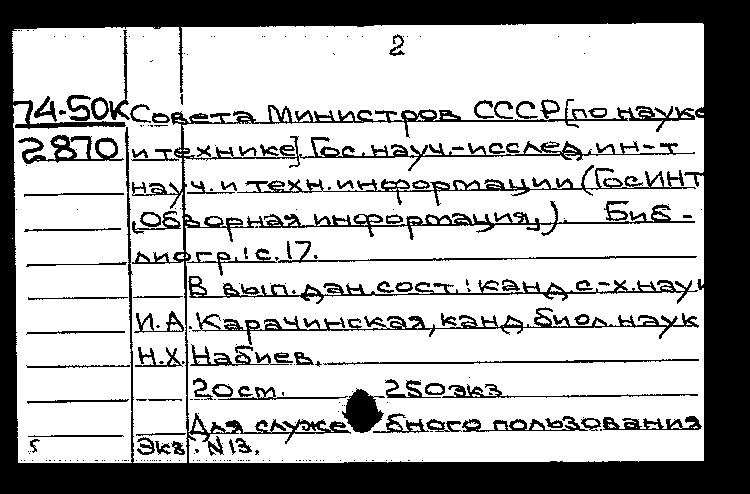 2
74-50К Совета Министров СССР[по науке
2870 и технике]. Гос. науч.-исслед. ин-т
науч. и техн. информации (ГосИНТ
„Обзорная информация„). Биб-
лиогр.: с. 17.
В вып. дан. сост.: канд. с.-х. наук
И.А. Карачинская, канд. биол. наук
Н.Х. Набиев.
20 ст. 250 экз
Для служебного пользования
5 Экз. N 13.